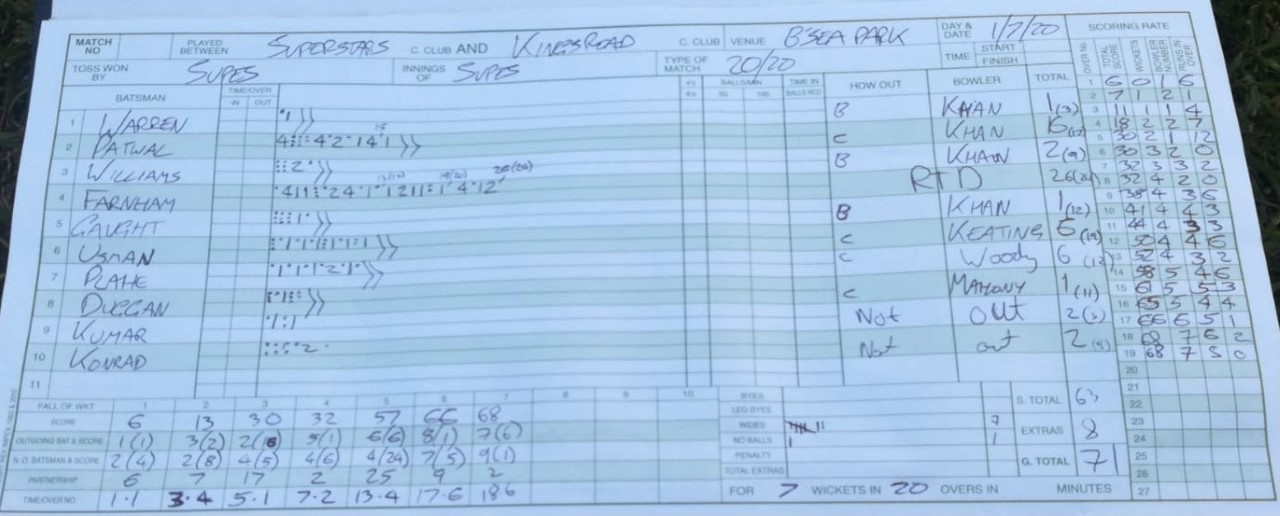 MATCH NO PLAYED BETWEEN SUPERSTARS C. CLUB AND KINGSROAD C. CLUB VENUE B'SEA PARK DAY & DATE 1/7/20 SCORING RATE
TOSS WON BY SUPES INNINGS OF SUPES TYPE OF MATCH 20/20 TIME START FINISH
BATSMAN TIME/OVER IN OUT 4's 6's BALLS/MIN 50 100 TIME IN BALLS RCD HOW OUT BOWLER TOTAL OVER No TOTAL SCORE WICKETS BOWLER NUMBER RUNS IN OVER
1 WARREN B KHAN 1(3)
2 PATWAL C KHAN
3 WILLIAMS B KHAN 2(9)
4 FARNHAM RTD
5 GAUGHT B KHAN 1(12)
6 USMAN C KEATING 6
7 PLAHE C Woody 6
8 DUGGAN C MAHONY 1(11)
9 KUMAR Not out 2(3)
10 KONRAD Not out 2
11
1 6 0 1 6
2 7 1 2 1
3 11 1 1 4
4 18 2 2 7
5 30 2 1 12
6 30 3 2 0
7 32 3 3 2
8 32 4 2 0
9 38 4 3 6
10 41 4 4 3
11 44 4 3 3
12 50 4 4 6
13 52 4 3 2
14 58 5 4 6
15 61 5 5 3
16 65 5 4 4
17 66 6 5 1
18 68 7 6 2
19 68 7 5 0
20
21
22
23
24
25
26
27
FALL OF WKT 1 2 3 4 5 6 7 8 9 10
SCORE 6 13 30 32 57 66 68
OUTGOING BAT & SCORE 1(1) 3(2) 5(1) 6(6) 8(1) 7(6)
N. O. BATSMAN & SCORE 2(4) 2(8) 4(5) 4(6) 4(24) 7(5) 9(1)
PARTNERSHIP 6 7 17 2 25 9 2
TIME/OVER NO. 1.1 3.4 5.1 7.2 13.4 17.6 18.6
BYES
LEG BYES
WIDES 7
NO BALLS 1
PENALTY
TOTAL EXTRAS
S. TOTAL 63
EXTRAS 8
G. TOTAL 71
FOR 7 WICKETS IN 20 OVERS IN MINUTES